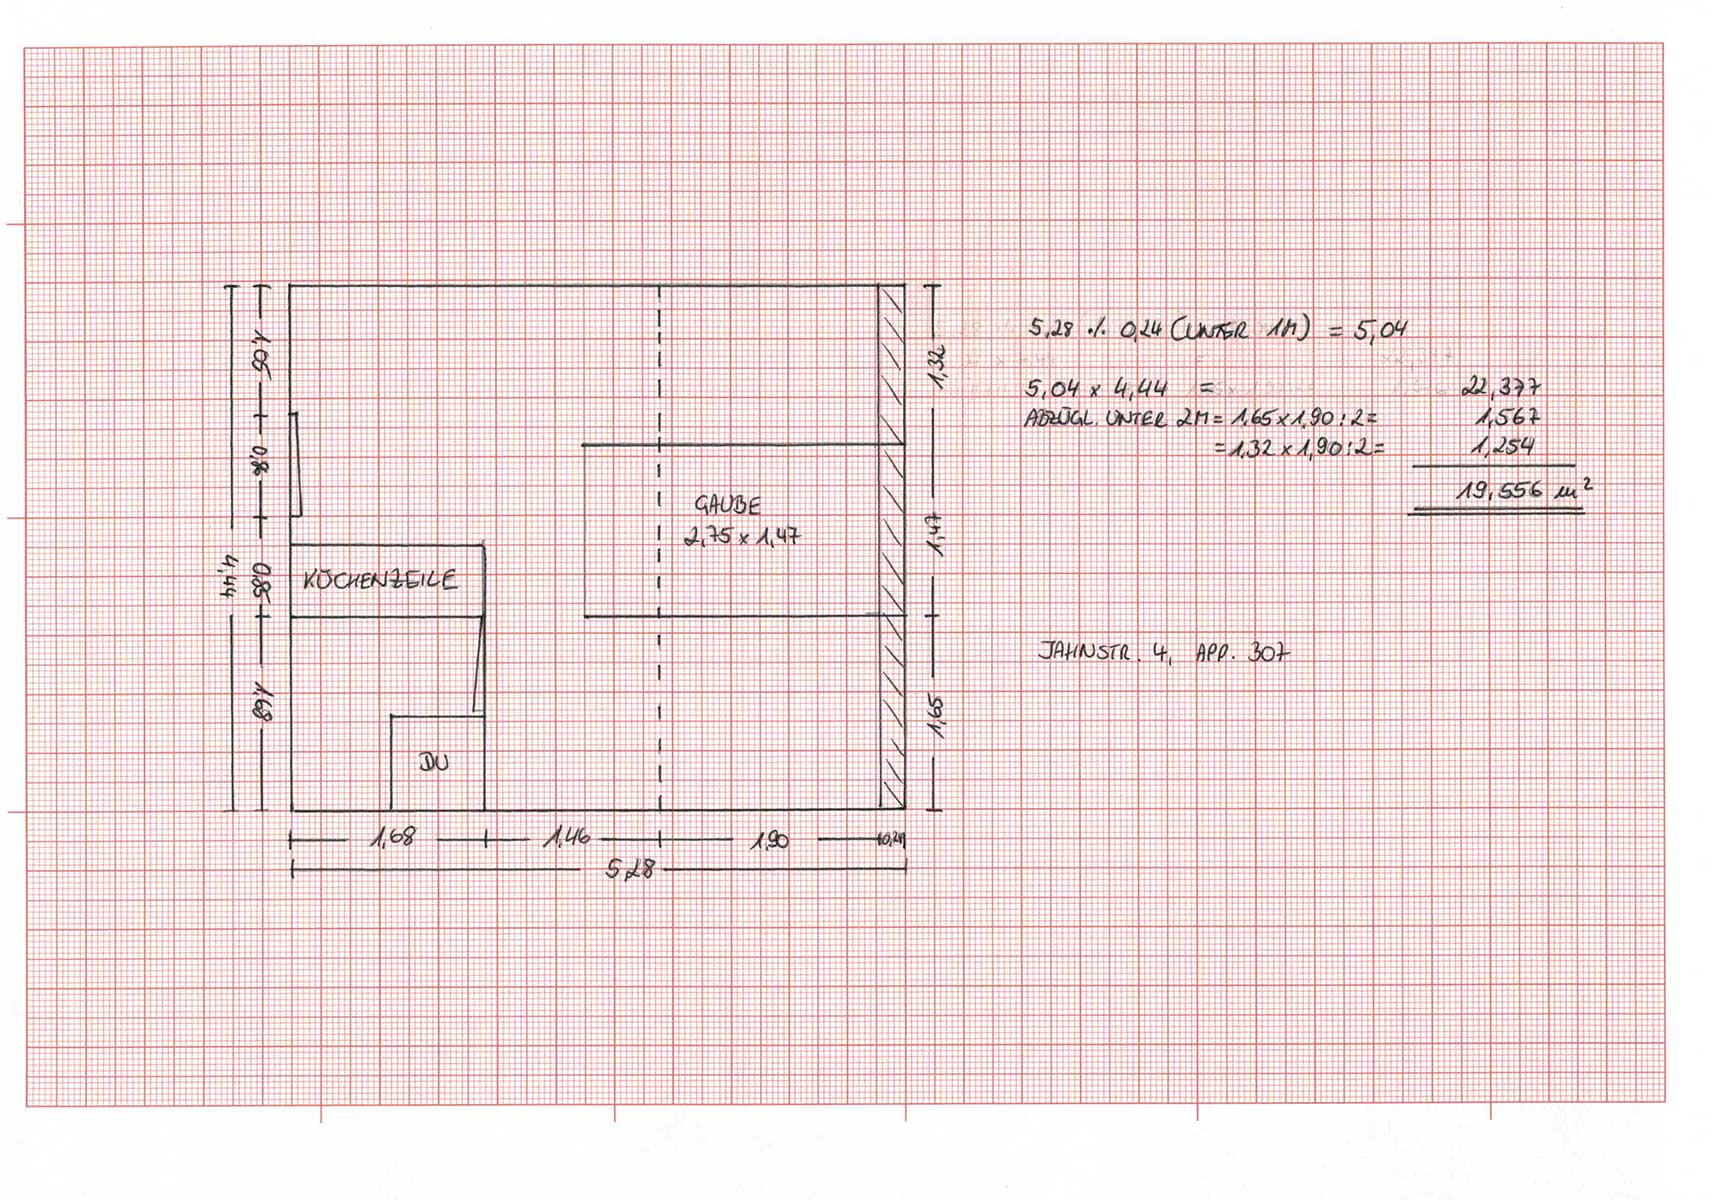 1,05
0,86
0,85
1,68
4,44
KÜCHENZEILE
DU
GAUBE
2,75 x 1,47
1,32
1,47
1,65
1,68
1,46
1,90
0,24
5,28
5,28 ·/. 0,24 (UNTER 1M) = 5,04
5,04 x 4,44 = 22,377
ABZÜGL. UNTER 2M = 1,65 x 1,90 : 2 = 1,567
= 1,32 x 1,90 : 2 = 1,254
19,556 m²
JAHNSTR. 4, APP. 307